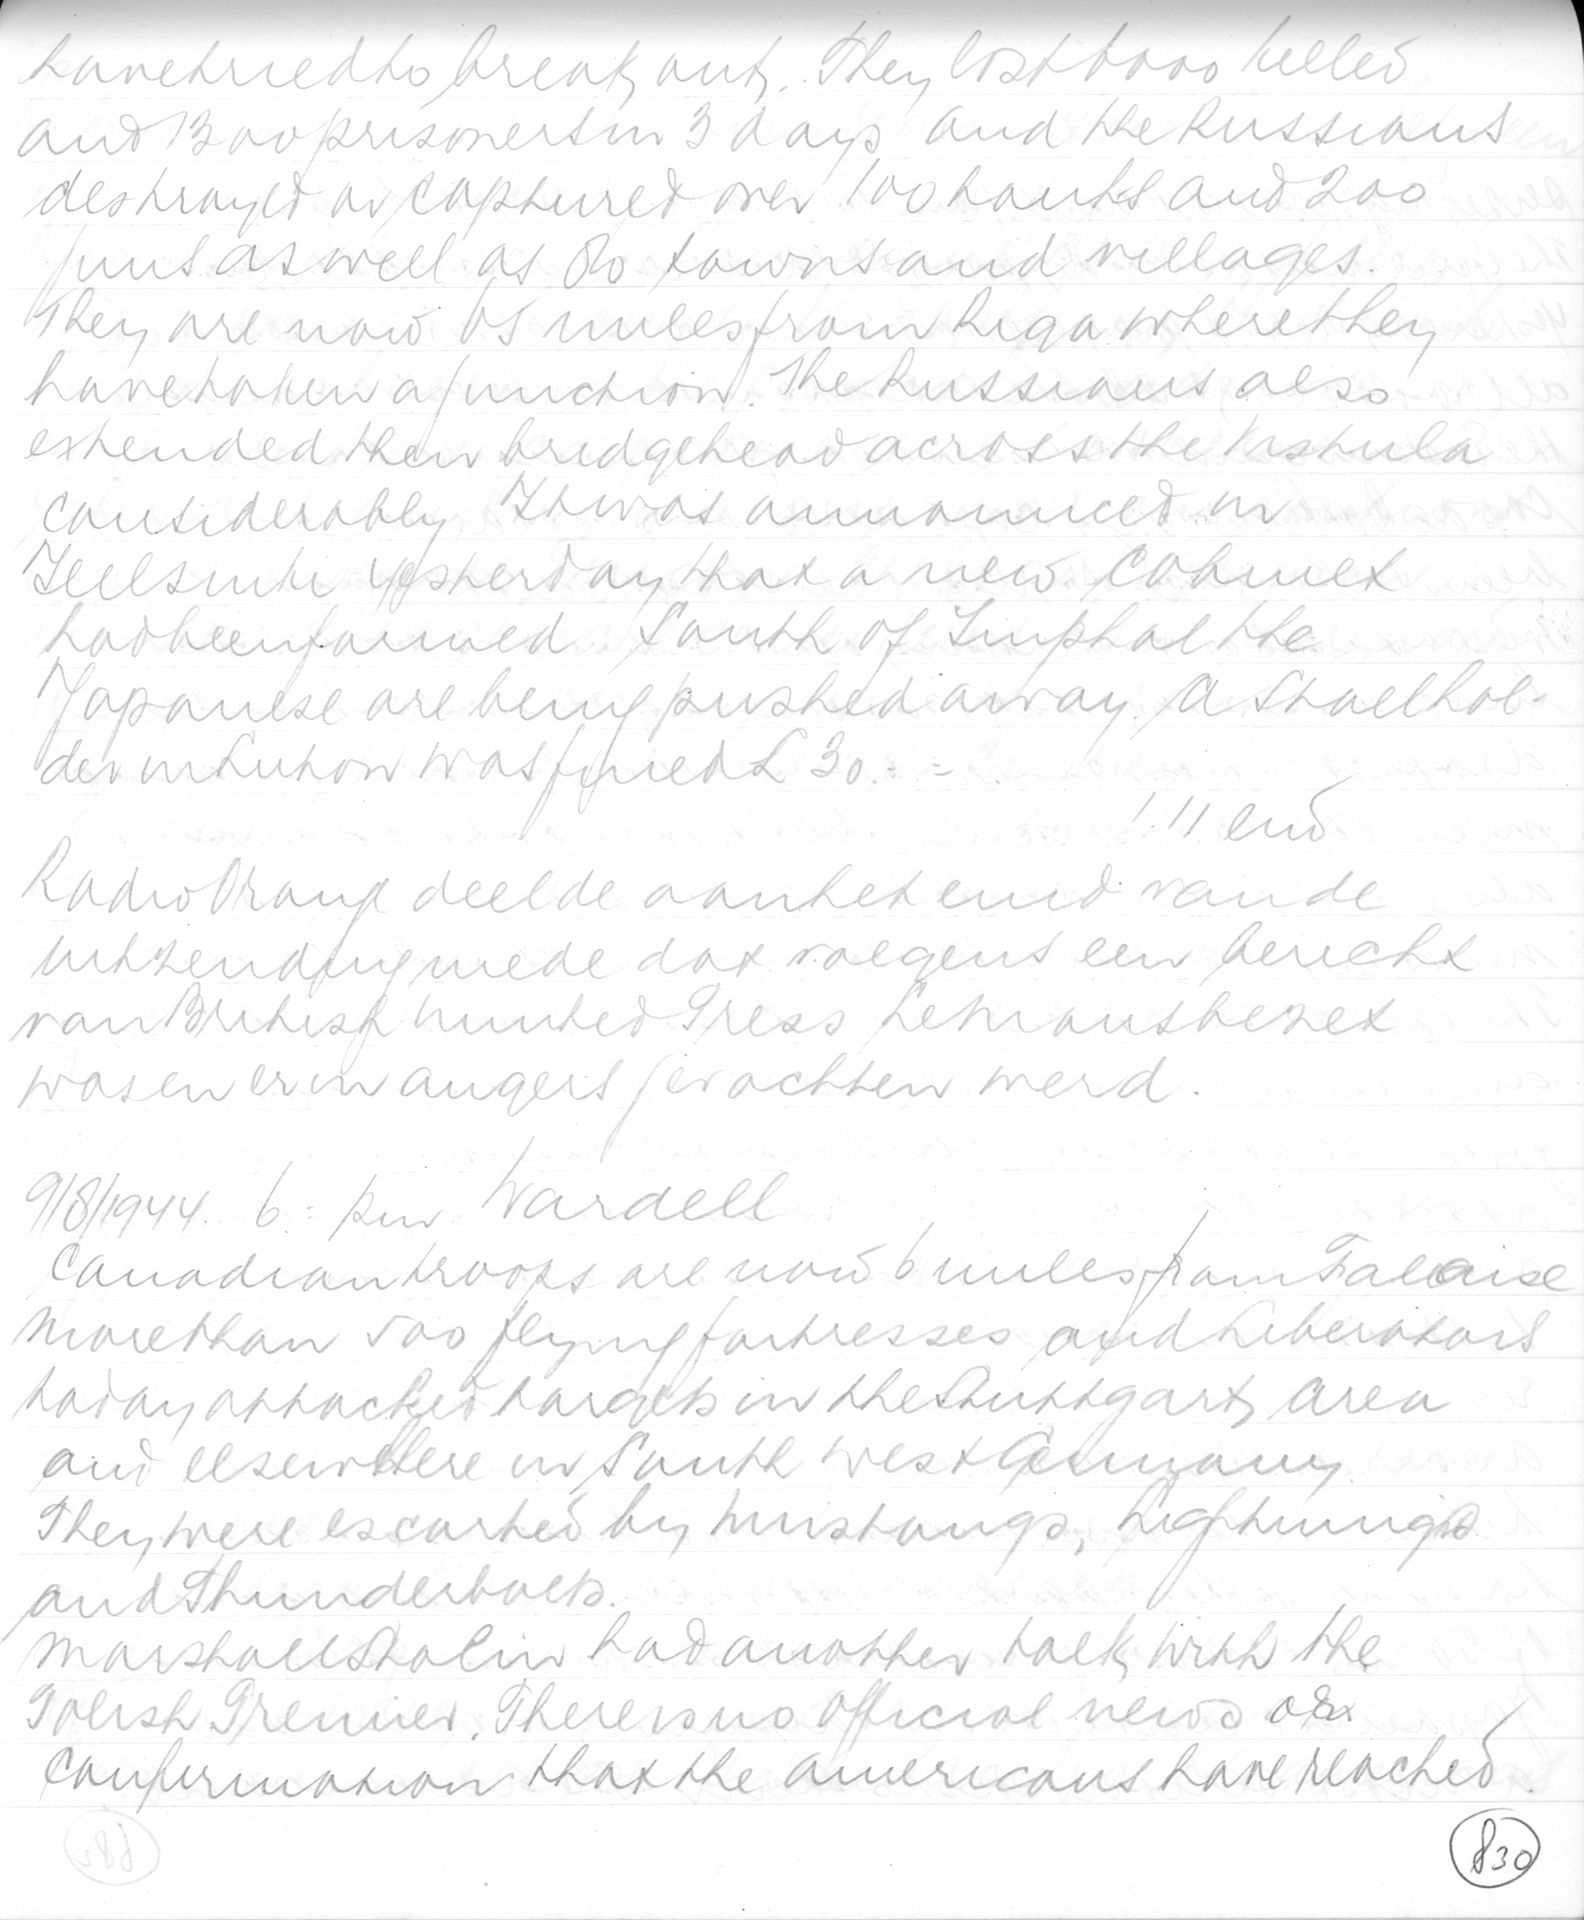 have tried to break out. They lost 6000 killed
and 1300 prisoners in 3 days and the Russians
destroyed or captured over 100 tanks and 200
guns as well as 80 towns and villages.
They are now 65 miles from Riga where they
have taken a junction. The Russians also
extended their bridgehead across the Vistula
considerably. It was announced in
Helsinki yesterday that a new cabinet
had been formed. South of Imphal the
Japanese are being pushed away. A Stallhol-
der in Luton was fined £ 30.= =
! !! end
Radio Oranje deelde aan het eind van de
uitzending mede dat volgens een bericht
van British United Press Le Mans bezet
was en er in Angers gevochten werd.
9/8/1944. 6.= pm Wardell
Canadian troops are now 6 miles from Falaise
More than 500 flying fortresses and Liberators
today attacked targets in the Stuttgart area
and elsewhere in South West Germany
They were escorted by Mustangs, Lightnings
and Thunderbolts.
Marshall Stalin had another talk with the
Polish Premier. There is no official news or
confirmation that the americans have reached
830